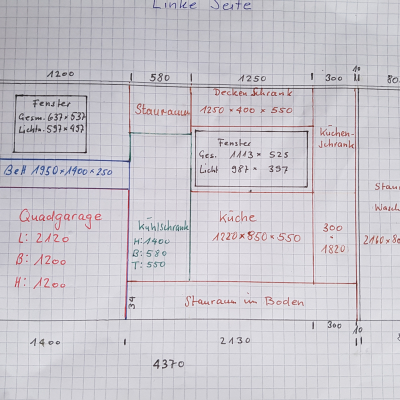 Linke Seite
1200
580
1250
300
10
80
Fenster
Gesm. 637×537
Lichtm. 597×497
Stauraum
Decken Schrank
1250×400×550
Küchen-
schrank
Fenster
Ges. 1113 × 525
Licht 987 × 397
Bett 1950×1400×250
Quadgarage
L: 2120
B: 1200
H: 1200
Kühlschrank
H: 1400
B: 580
T: 550
Küche
1220×850×550
300
×
1820
Stau
Wasch
2160×80
Stauraum im Boden
39
300
10
1400
2130
4370